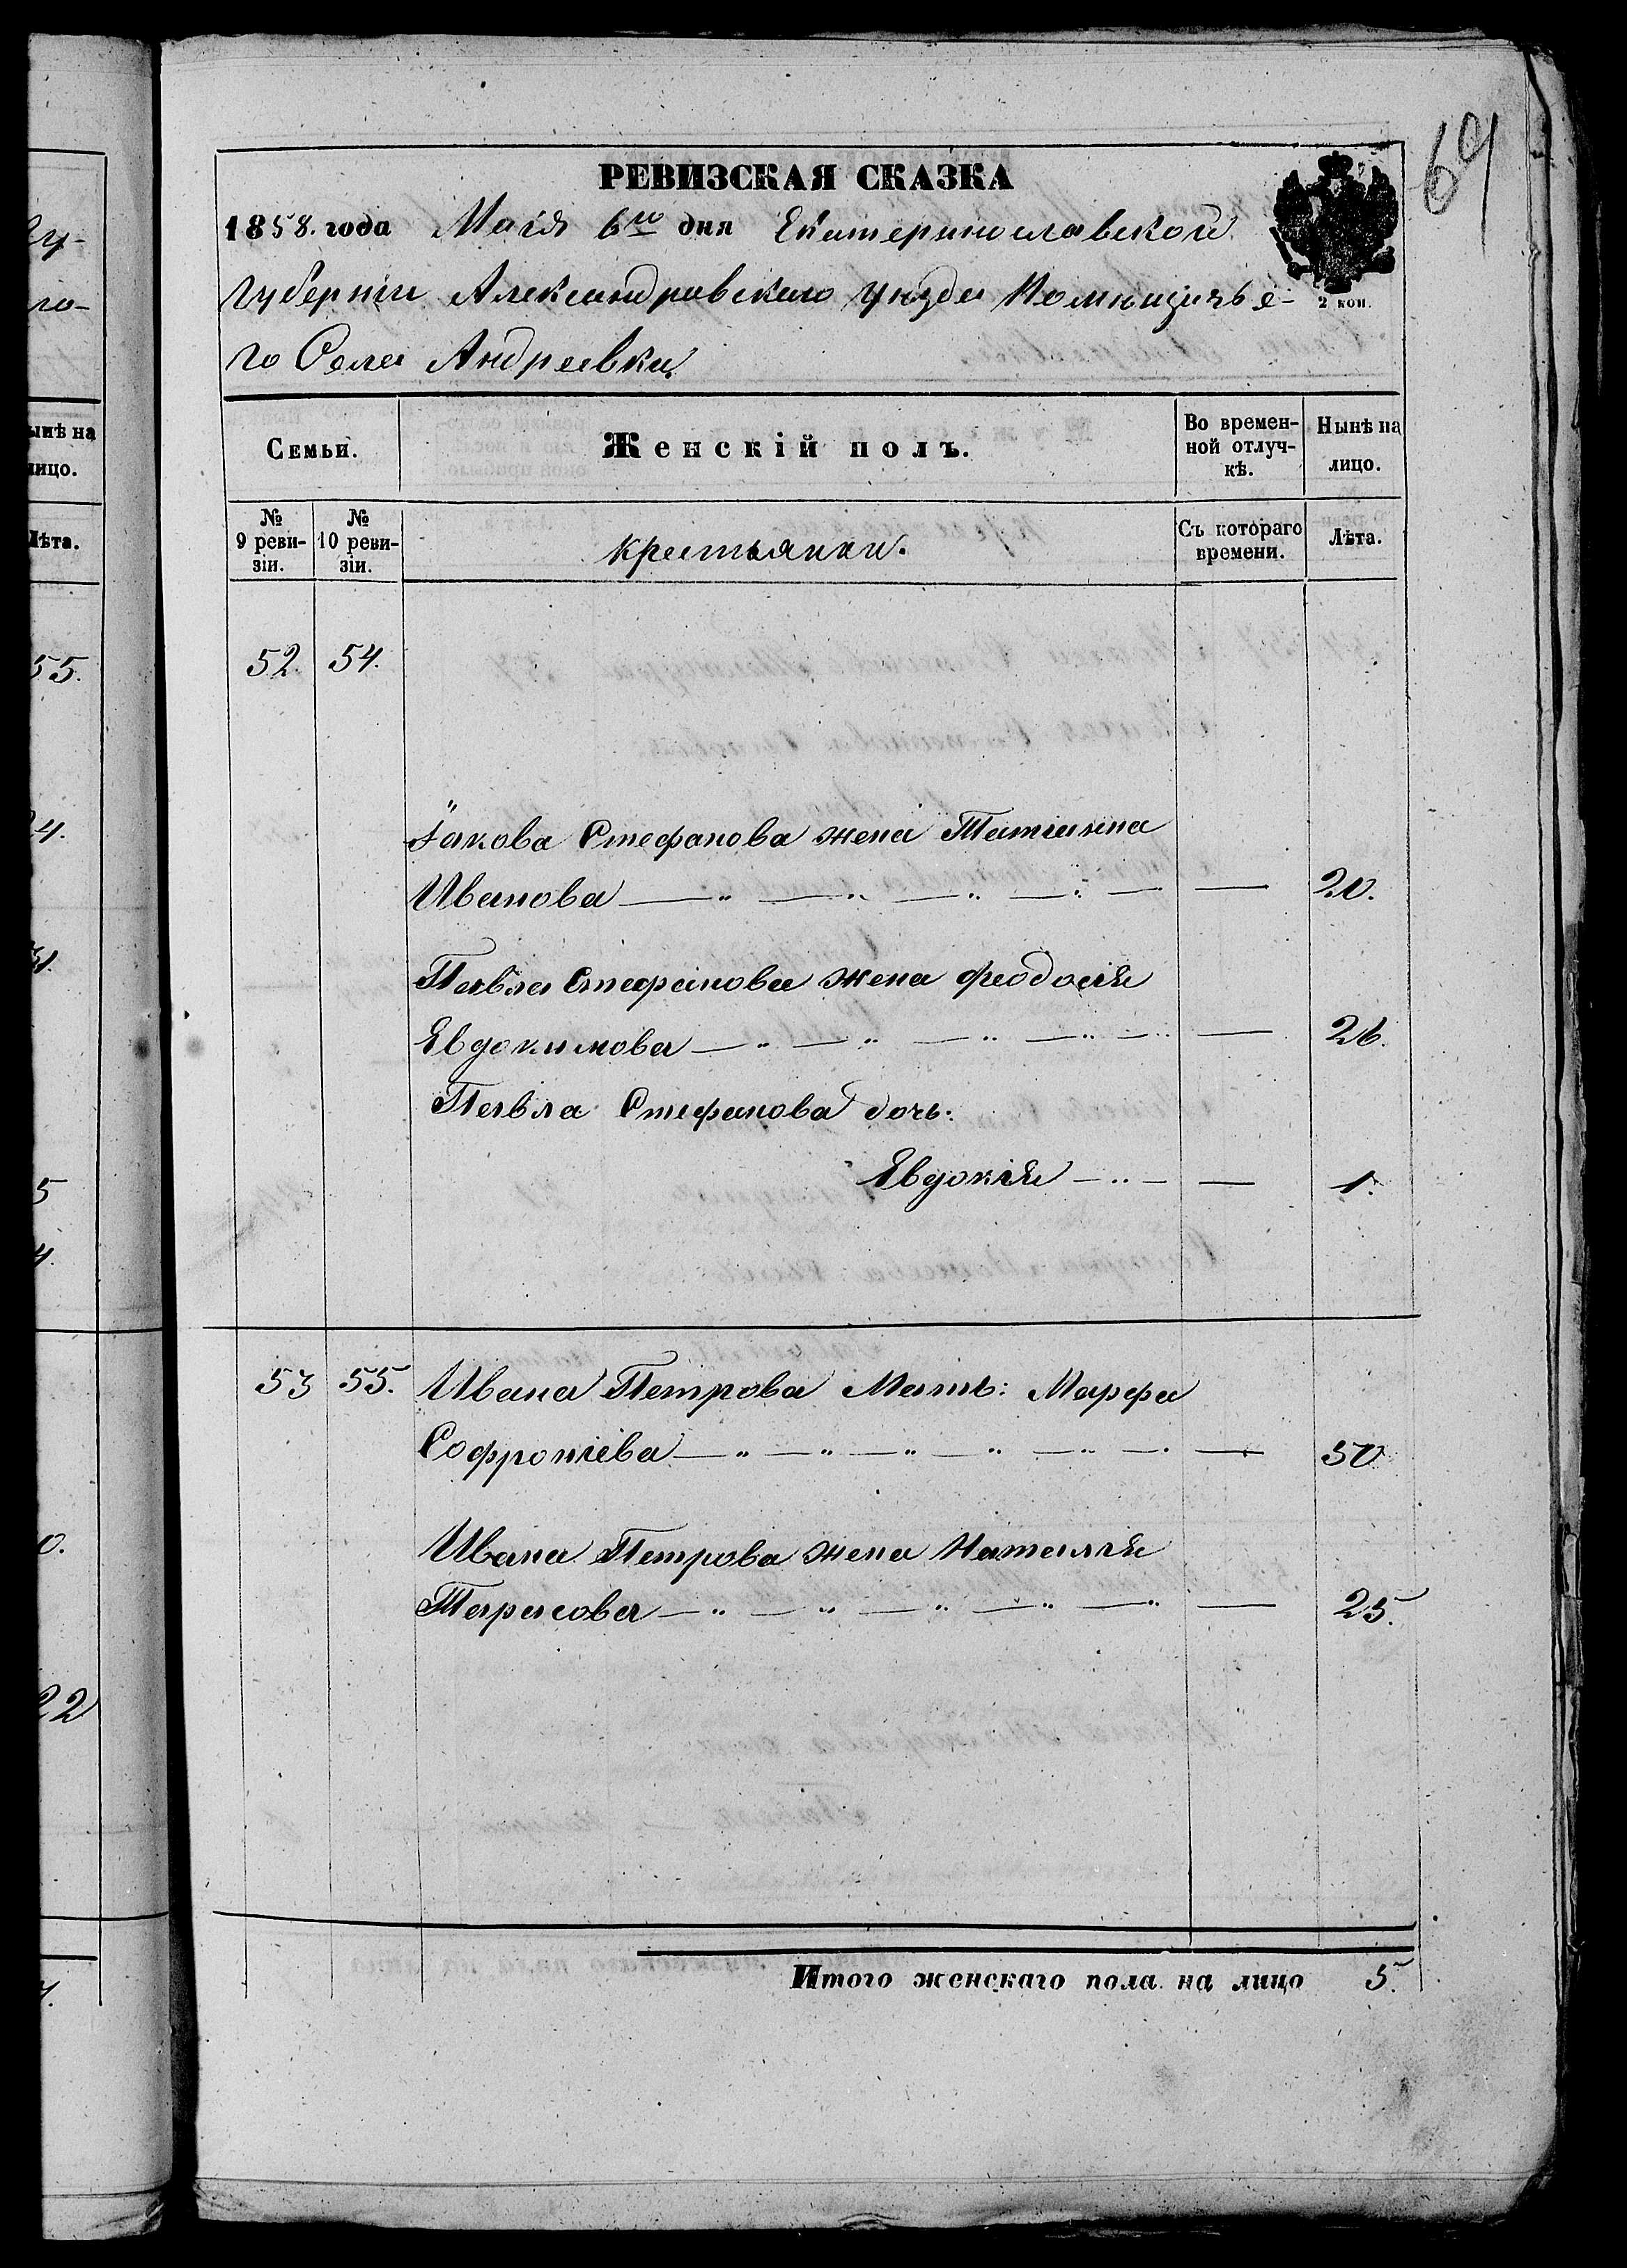 69
РЕВИЗСКАЯ СКАЗКА
1858. года Маія 6го дня Екатеринославской
Губерніи Александровскаго уѣзда Помѣщичьė-
2 коп.
го Села Андреевки
Семьи.
Женскій полъ.
Во времен-
ной отлуч-
кѣ.
Нынѣ на
лицо.
№
9 реви-
зіи.
№
10 реви-
зіи.
крестьянки.
Съ котораго
времени.
Лѣта.
52. 54.
Іакова Стефанова жена Татіанна
Иванова — „ — „ — „ — „ — — 20.
Павла Стефанова жена Феодосія
Евдокимова — „ — „ — „ — „ — — 26.
Павла Стефанова дочь:
Евдокія — „ — — 1.
53 55. Ивана Петрова Мать: Марфа
Софроніева — „ — „ — „ — „ — „ — — 50
Ивана Петрова жена Наталія
Тарасова — „ — „ — „ — „ — „ — 25.
Итого женскаго пола на лицо 5.
ынѣ на
лицо.
Лѣта.
55.
22